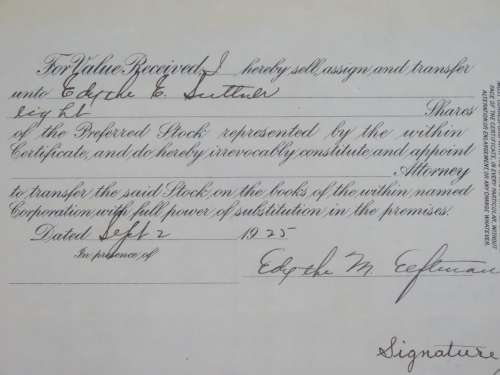 For Value Received, I hereby sell, assign, and transfer
unto Edythe E. Suttner
eight Shares
of the Preferred Stock represented by the within
Certificate, and do hereby irrevocably constitute and appoint
Attorney
to transfer the said Stock, on the books, of the within, named
Corporation, with full power of substitution in the premises.
Dated Sept 2 1925
In presence of
Edythe M
Signature
FACE OF THE CERTIFICATE, IN EVERY PARTICULAR, WITHOUT
ALTERATION OR ENLARGEMENT OR ANY CHANGE WHATEVER.